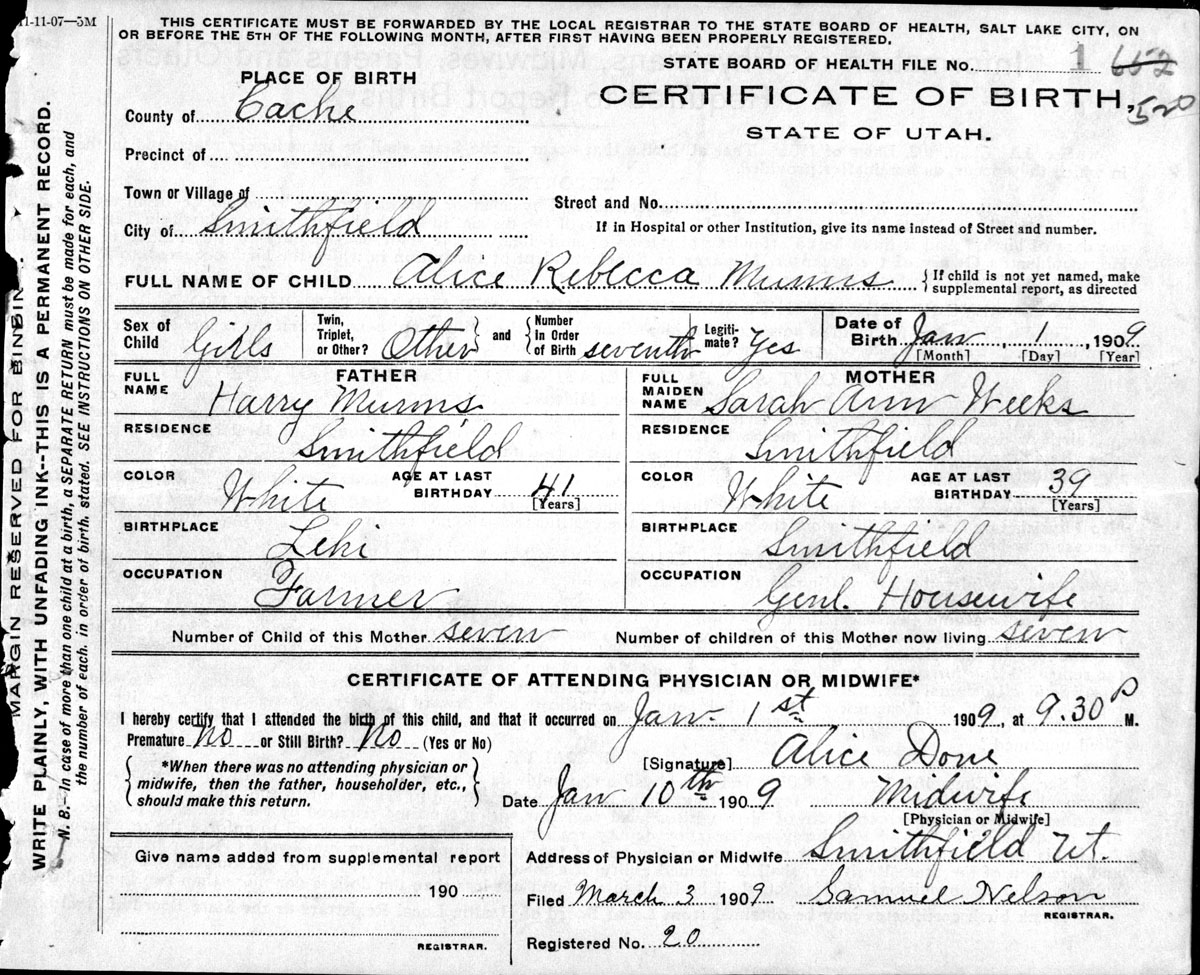 11-11-07—5M
THIS CERTIFICATE MUST BE FORWARDED BY THE LOCAL REGISTRAR TO THE STATE BOARD OF HEALTH, SALT LAKE CITY, ON
OR BEFORE THE 5TH OF THE FOLLOWING MONTH, AFTER FIRST HAVING BEEN PROPERLY REGISTERED.
STATE BOARD OF HEALTH FILE No. 1 652
520
PLACE OF BIRTH
CERTIFICATE OF BIRTH,
STATE OF UTAH.
County of Cache
Precinct of
Town or Village of
Street and No.
City of Smithfield
If in Hospital or other Institution, give its name instead of Street and number.
FULL NAME OF CHILD Alice Rebecca Munns { If child is not yet named, make
supplemental report, as directed
Sex of
Child Girls
Twin,
Triplet,
or Other? Other } and { Number
In Order
of Birth seventh
Legiti-
mate? Yes
Date of
Birth Jan 1, 1909
[Month] [Day] [Year]
FATHER
FULL
NAME Harry Munns
RESIDENCE Smithfield
COLOR White AGE AT LAST
BIRTHDAY 41
[Years]
BIRTHPLACE Lehi
OCCUPATION Farmer
MOTHER
FULL
MAIDEN
NAME Sarah Ann Weeks
RESIDENCE Smithfield
COLOR White AGE AT LAST
BIRTHDAY 39
[Years]
BIRTHPLACE Smithfield
OCCUPATION Genl. Housewife
Number of Child of this Mother seven Number of children of this Mother now living seven
CERTIFICATE OF ATTENDING PHYSICIAN OR MIDWIFE*
I hereby certify that I attended the birth of this child, and that it occurred on Jan. 1st 1909, at 9.30 P M.
Premature No or Still Birth? No (Yes or No)
*When there was no attending physician or
midwife, then the father, householder, etc.,
should make this return.
[Signature] Alice Done
Date Jan 10th 1909 Midwife
[Physician or Midwife]
Give name added from supplemental report
190
REGISTRAR.
Address of Physician or Midwife Smithfield Ut.
Filed March 3 1909 Samuel Nelson
REGISTRAR.
Registered No. 20
MARGIN RESERVED FOR BINDIN
WRITE PLAINLY, WITH UNFADING INK--THIS IS A PERMANENT RECORD.
N. B.—In case of more than one child at a birth, a SEPARATE RETURN must be made for each, and
the number of each, in order of birth, stated. SEE INSTRUCTIONS ON OTHER SIDE.